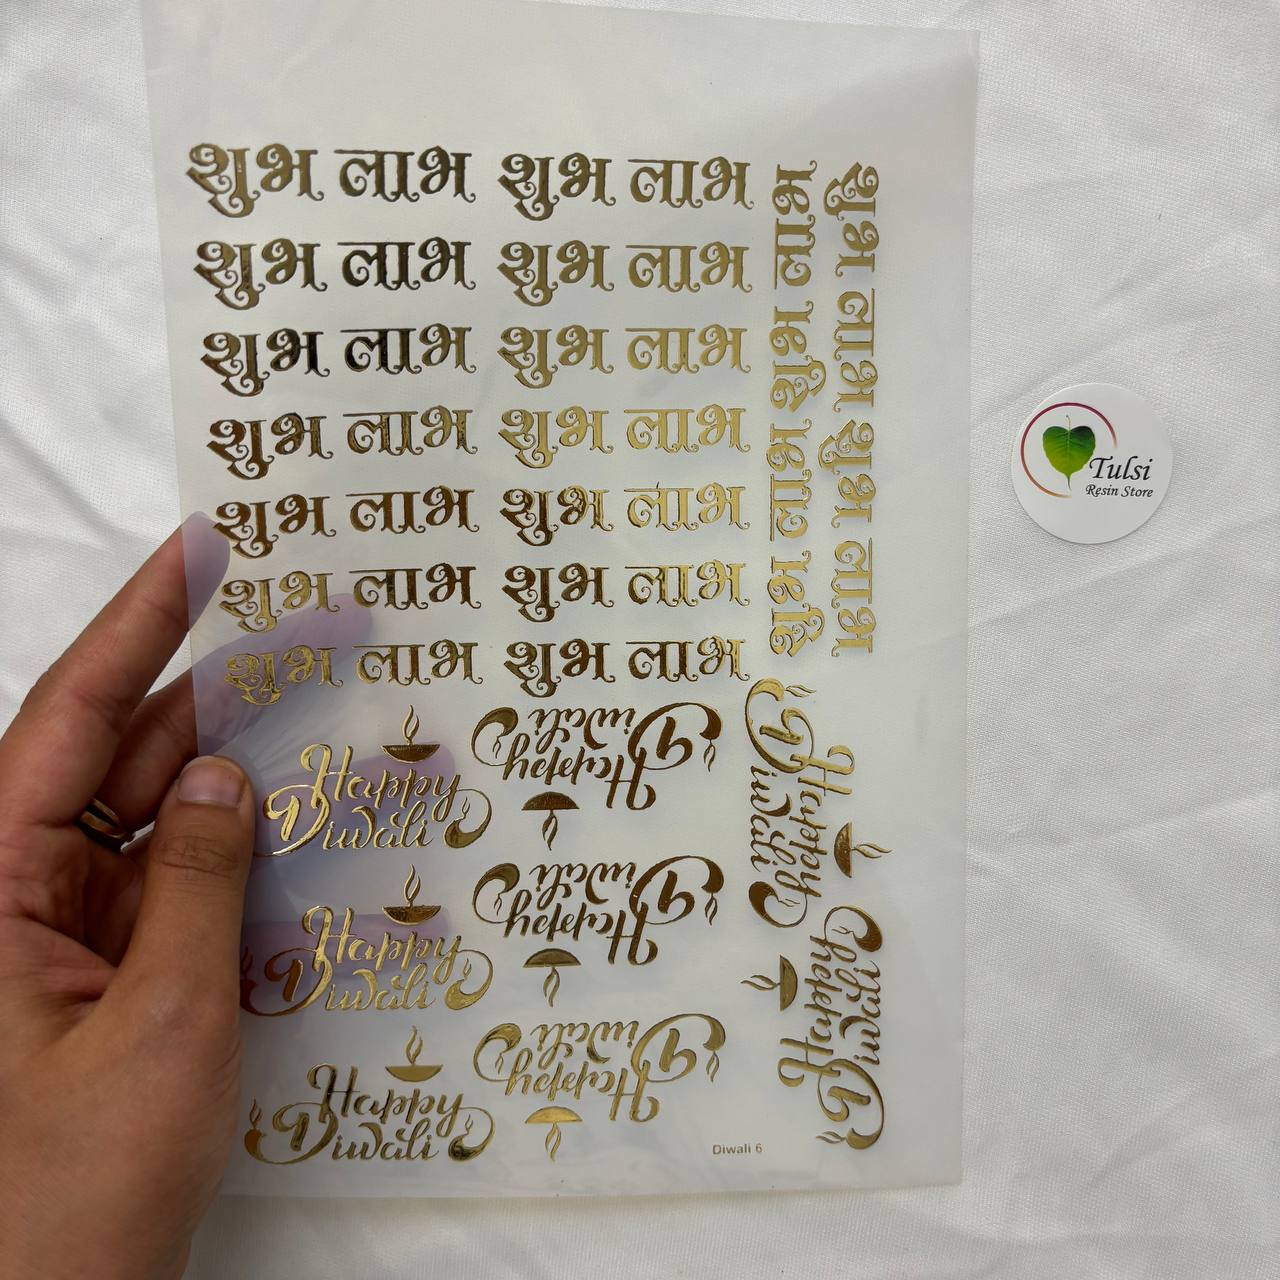 शुभ लाभ शुभ लाभ
शुभ लाभ शुभ लाभ
शुभ लाभ शुभ लाभ
शुभ लाभ शुभ लाभ
शुभ लाभ शुभ लाभ
शुभ लाभ शुभ लाभ
शुभ लाभ शुभ लाभ
शुभ लाभ शुभ लाभ
शुभ लाभ शुभ लाभ
Happy
Diwali
Happy
Diwali
Happy
Diwali
Happy
Diwali
Happy
Diwali
Happy
Diwali
Happy
Diwali
Happy
Diwali
Diwali 6
Tulsi
Resin Store